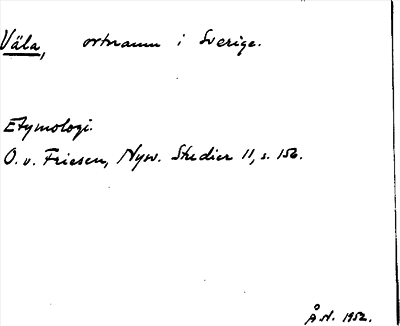 Väla, ortnamn i Sverige.
Etymologi.
O. v. Friesen, Nysv. Studier 11, s. 156.
Å st. 1952.